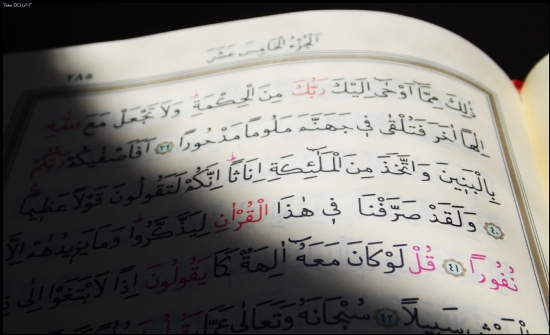 Taha BOLAT
الجزء الخامس عشر
٢٨٥
ذٰلِكَ مِمَّٓا اَوْحٰٓى اِلَيْكَ رَبُّكَ مِنَ الْحِكْمَةِ وَلَا تَجْعَلْ مَعَ اللّٰهِ
اِلٰهًا اٰخَرَ فَتُلْقٰى فِي جَهَنَّمَ مَلُومًا مَدْحُورًا ﴿٣٩﴾ اَفَاَصْفٰيكُمْ رَبُّكُمْ
بِالْبَنِينَ وَاتَّخَذَ مِنَ الْمَلٰٓئِكَةِ اِنَاثًا اِنَّكُمْ لَتَقُولُونَ قَوْلًا عَظِيمًا
﴿٤٠﴾ وَلَقَدْ صَرَّفْنَا فِي هٰذَا الْقُرْاٰنِ لِيَذَّكَّرُوا وَمَا يَزِيدُهُمْ اِلَّا
نُفُورًا ﴿٤١﴾ قُلْ لَوْ كَانَ مَعَهُٓ اٰلِهَةٌ كَمَا يَقُولُونَ اِذًا لَابْتَغَوْا اِلٰى
سَبِيلًا ﴿٤٢﴾ سُبْحَانَهُ وَتَعَالٰى عَمَّا